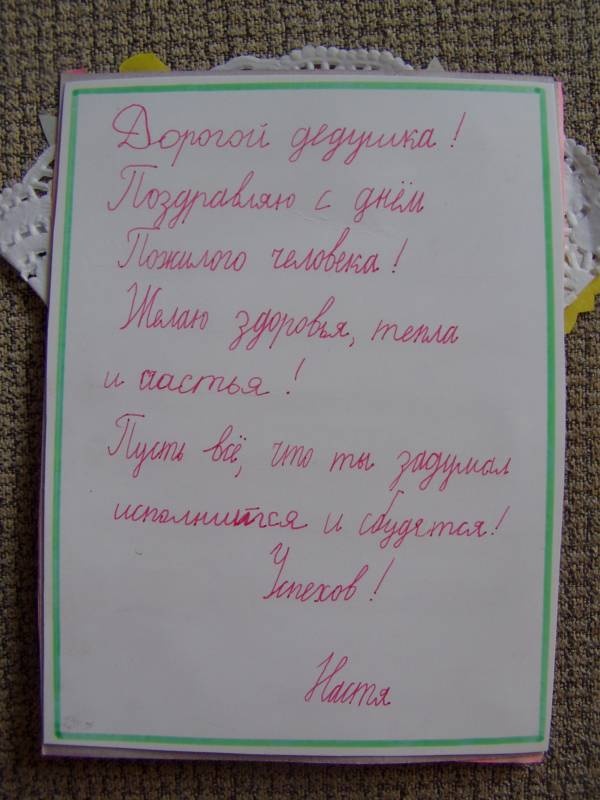 Дорогой дедушка!
Поздравляю с днём
Пожилого человека!
Желаю здоровья, тепла
и счастья!
Пусть всё, что ты задумал
исполнится и сбудется!
Успехов!
Настя